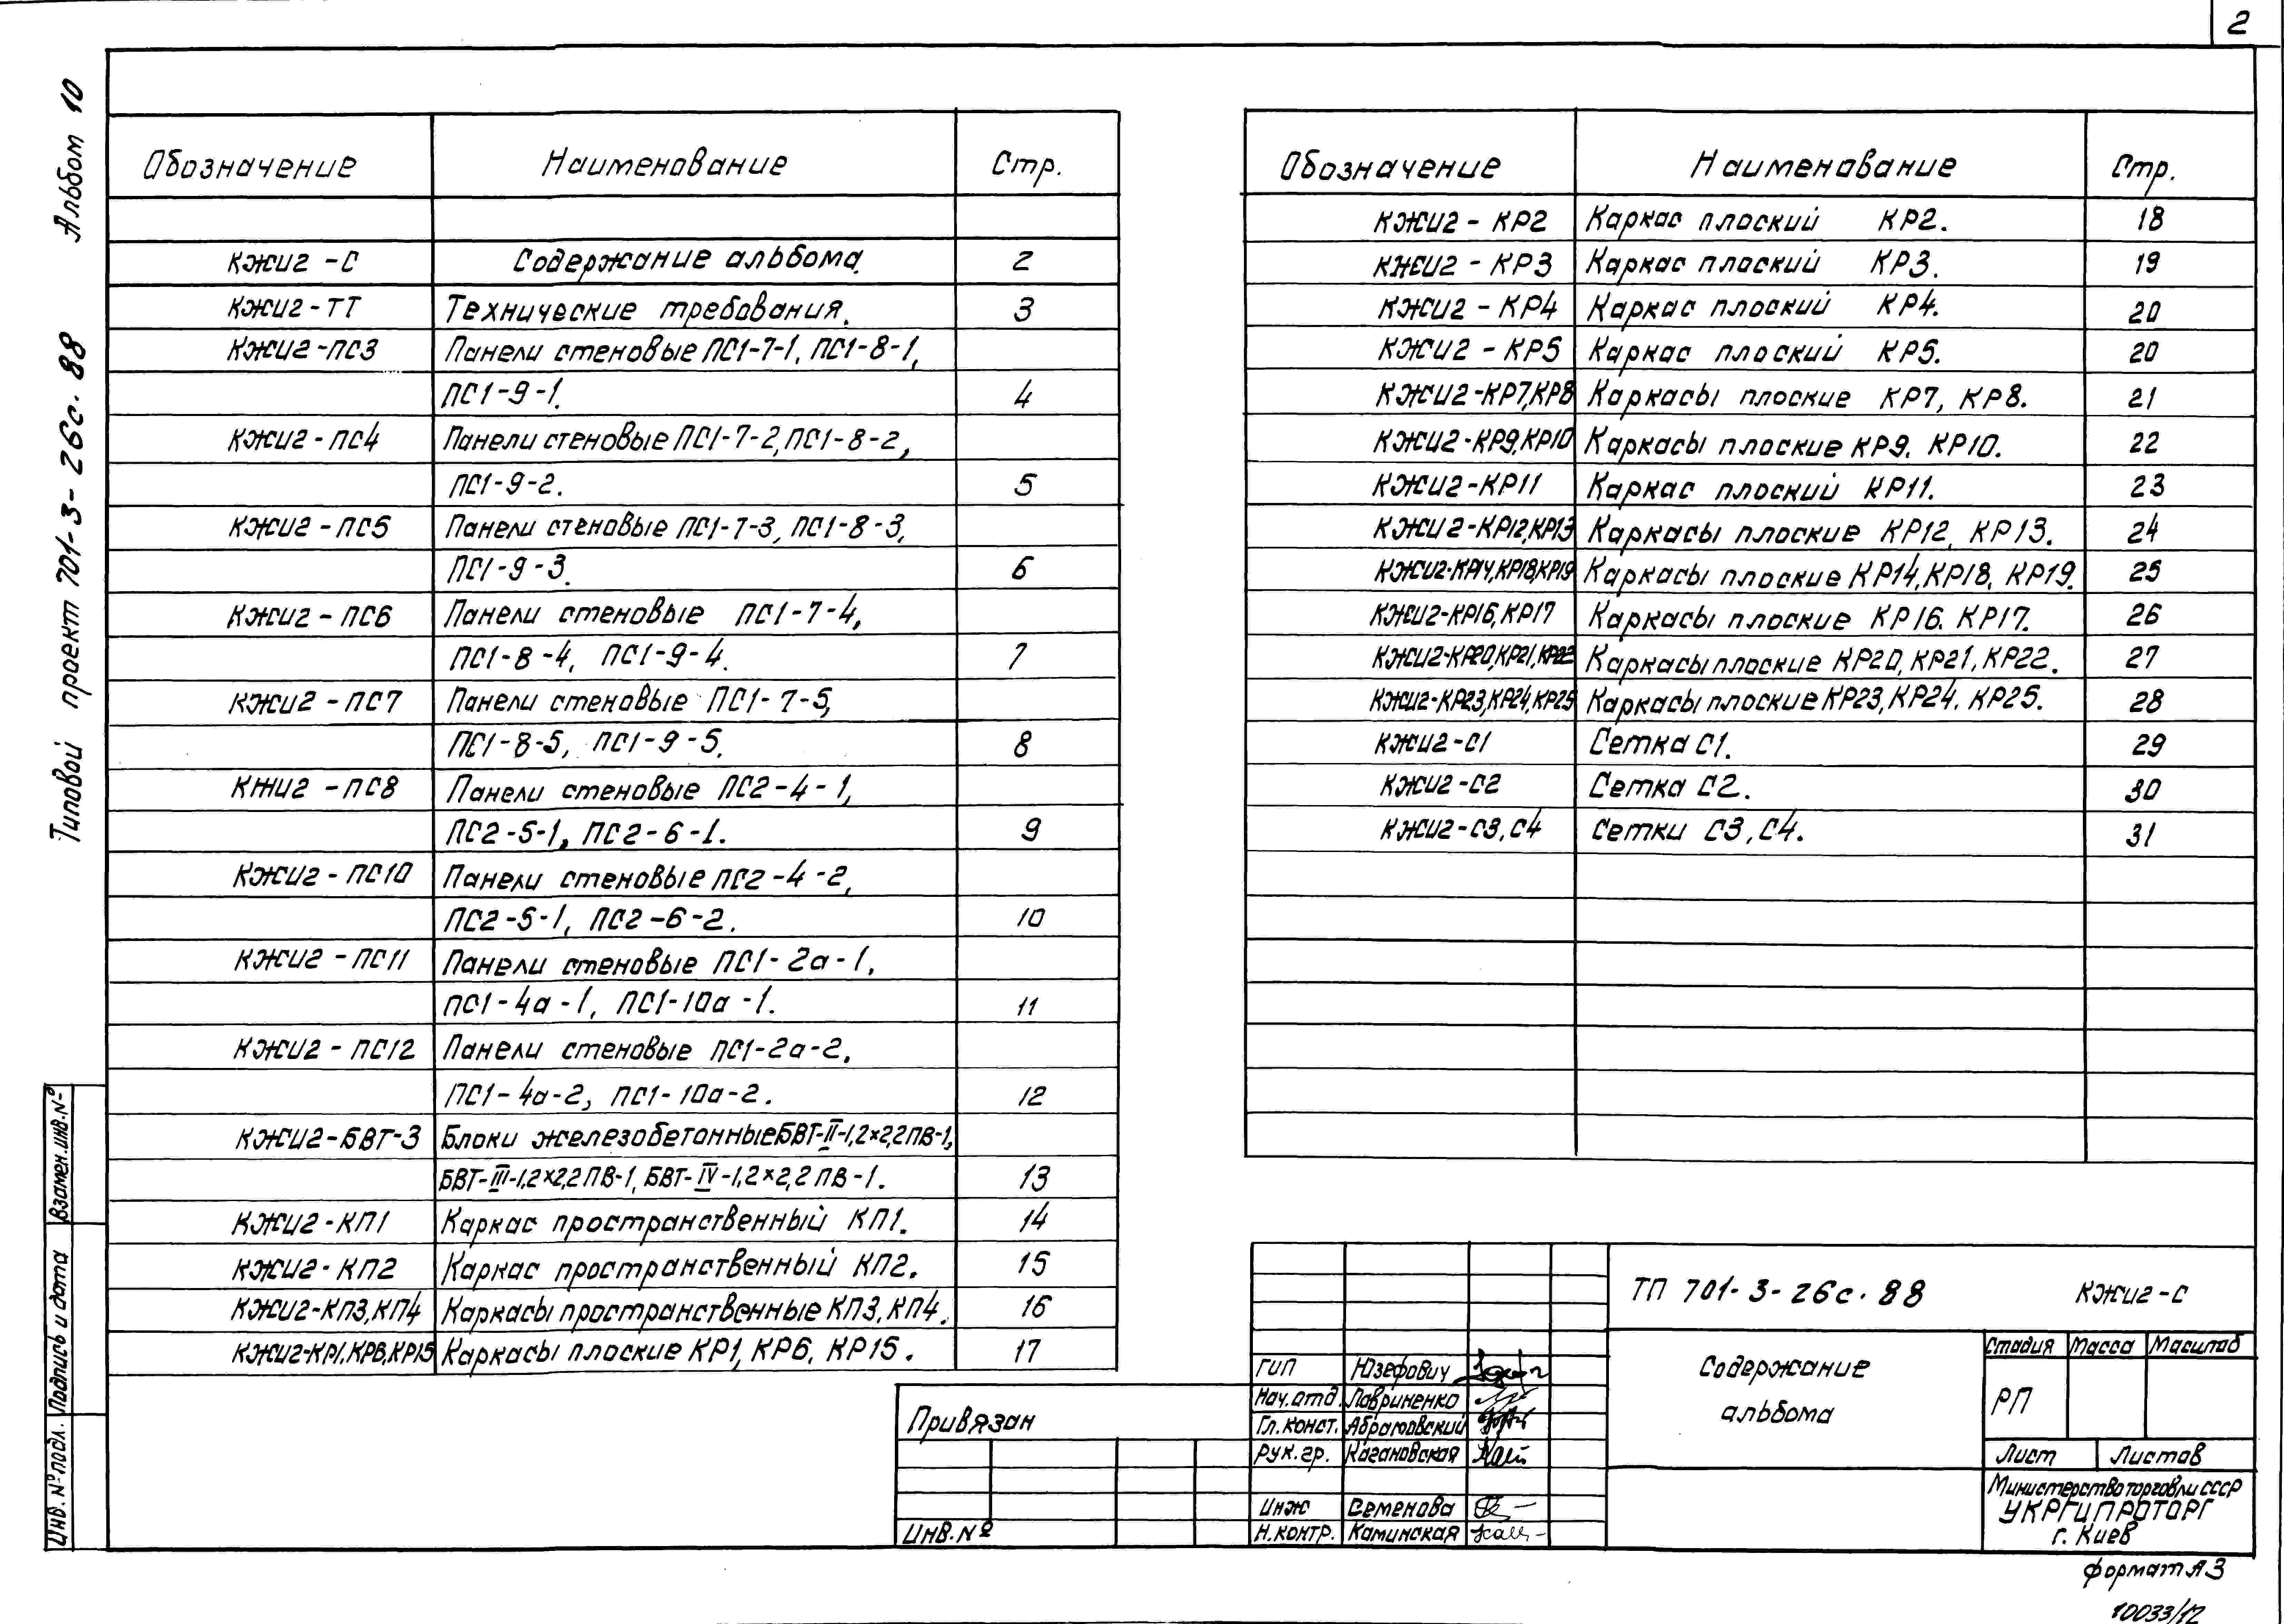 2
Альбом 10
Типовой проект 701-3-26с.88
Обозначение Наименование Стр.
КЖИ2-С Содержание альбома. 2
КЖИ2-ТТ Технические требования. 3
КЖИ2-ПС3 Панели стеновые ПС1-7-1, ПС1-8-1,
ПС1-9-1. 4
КЖИ2-ПС4 Панели стеновые ПС1-7-2, ПС1-8-2,
ПС1-9-2. 5
КЖИ2-ПС5 Панели стеновые ПС1-7-3, ПС1-8-3,
ПС1-9-3. 6
КЖИ2-ПС6 Панели стеновые ПС1-7-4,
ПС1-8-4, ПС1-9-4. 7
КЖИ2-ПС7 Панели стеновые ПС1-7-5,
ПС1-8-5, ПС1-9-5. 8
КЖИ2-ПС8 Панели стеновые ПС2-4-1,
ПС2-5-1, ПС2-6-1. 9
КЖИ2-ПС10 Панели стеновые ПС2-4-2,
ПС2-5-1, ПС2-6-2. 10
КЖИ2-ПС11 Панели стеновые ПС1-2а-1,
ПС1-4а-1, ПС1-10а-1. 11
КЖИ2-ПС12 Панели стеновые ПС1-2а-2.
ПС1-4а-2, ПС1-10а-2. 12
КЖИ2-БВТ-3 Блоки железобетонные БВТ-II-1,2×2,2ПВ-1,
БВТ-III-1,2×2,2ПВ-1, БВТ-IV-1,2×2,2ПВ-1. 13
КЖИ2-КП1 Каркас пространственный КП1. 14
КЖИ2-КП2 Каркас пространственный КП2. 15
КЖИ2-КП3, КП4 Каркасы пространственные КП3, КП4. 16
КЖИ2-КР1, КР6, КР15 Каркасы плоские КР1, КР6, КР15. 17
Обозначение Наименование Стр.
КЖИ2-КР2 Каркас плоский КР2. 18
КЖИ2-КР3 Каркас плоский КР3. 19
КЖИ2-КР4 Каркас плоский КР4. 20
КЖИ2-КР5 Каркас плоский КР5. 20
КЖИ2-КР7, КР8 Каркасы плоские КР7, КР8. 21
КЖИ2-КР9, КР10 Каркасы плоские КР9, КР10. 22
КЖИ2-КР11 Каркас плоский КР11. 23
КЖИ2-КР12, КР13 Каркасы плоские КР12, КР13. 24
КЖИ2-КР14, КР18, КР19 Каркасы плоские КР14, КР18, КР19. 25
КЖИ2-КР16, КР17 Каркасы плоские КР16. КР17. 26
КЖИ2-КР20, КР21, КР22 Каркасы плоские КР20, КР21, КР22. 27
КЖИ2-КР23, КР24, КР25 Каркасы плоские КР23, КР24, КР25. 28
КЖИ2-С1 Сетка С1. 29
КЖИ2-С2 Сетка С2. 30
КЖИ2-С3, С4 Сетки С3, С4. 31
Взамен.инв.№
Подпись и дата
Инв.№подл.
Привязан
Инв.№
ГИП Юзефович
Нач.отд. Лавриненко
Гл.конст. Абрамовский
Рук.гр. Кагановская
Инж Семенова
Н.контр. Каминская
ТП 701-3-26с.88 КЖИ2-С
Содержание
альбома
Стадия Масса Масштаб
РП
Лист Листов
Министерство торговли СССР
УКРГИПРОТОРГ
г. Киев
формат А3
10033/12